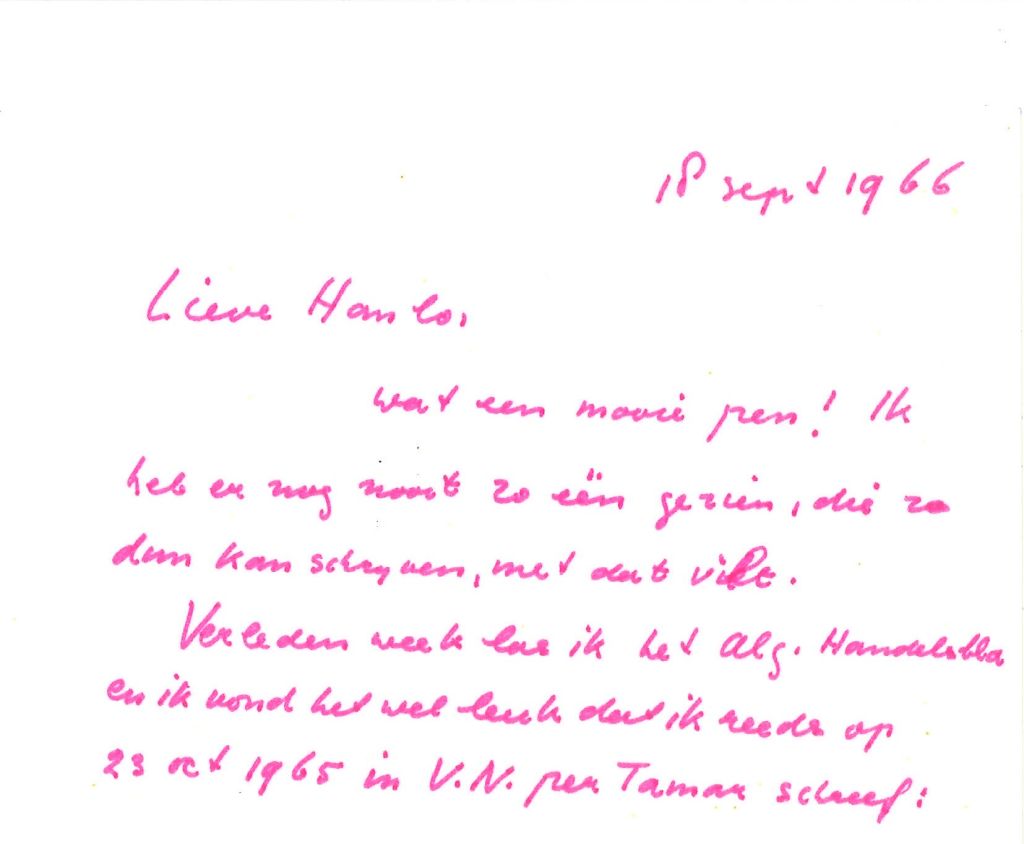 18 sept 1966
Lieve Hanlo,
wat een mooie pen! Ik
heb er nog nooit zo één gezien, die zo
dun kan schrijven, met dat vilt.
Verleden week las ik het Alg. Handelsbla
en ik vond het wel leuk dat ik reeds op
23 oct 1965 in V.N. per Tamar schreef: